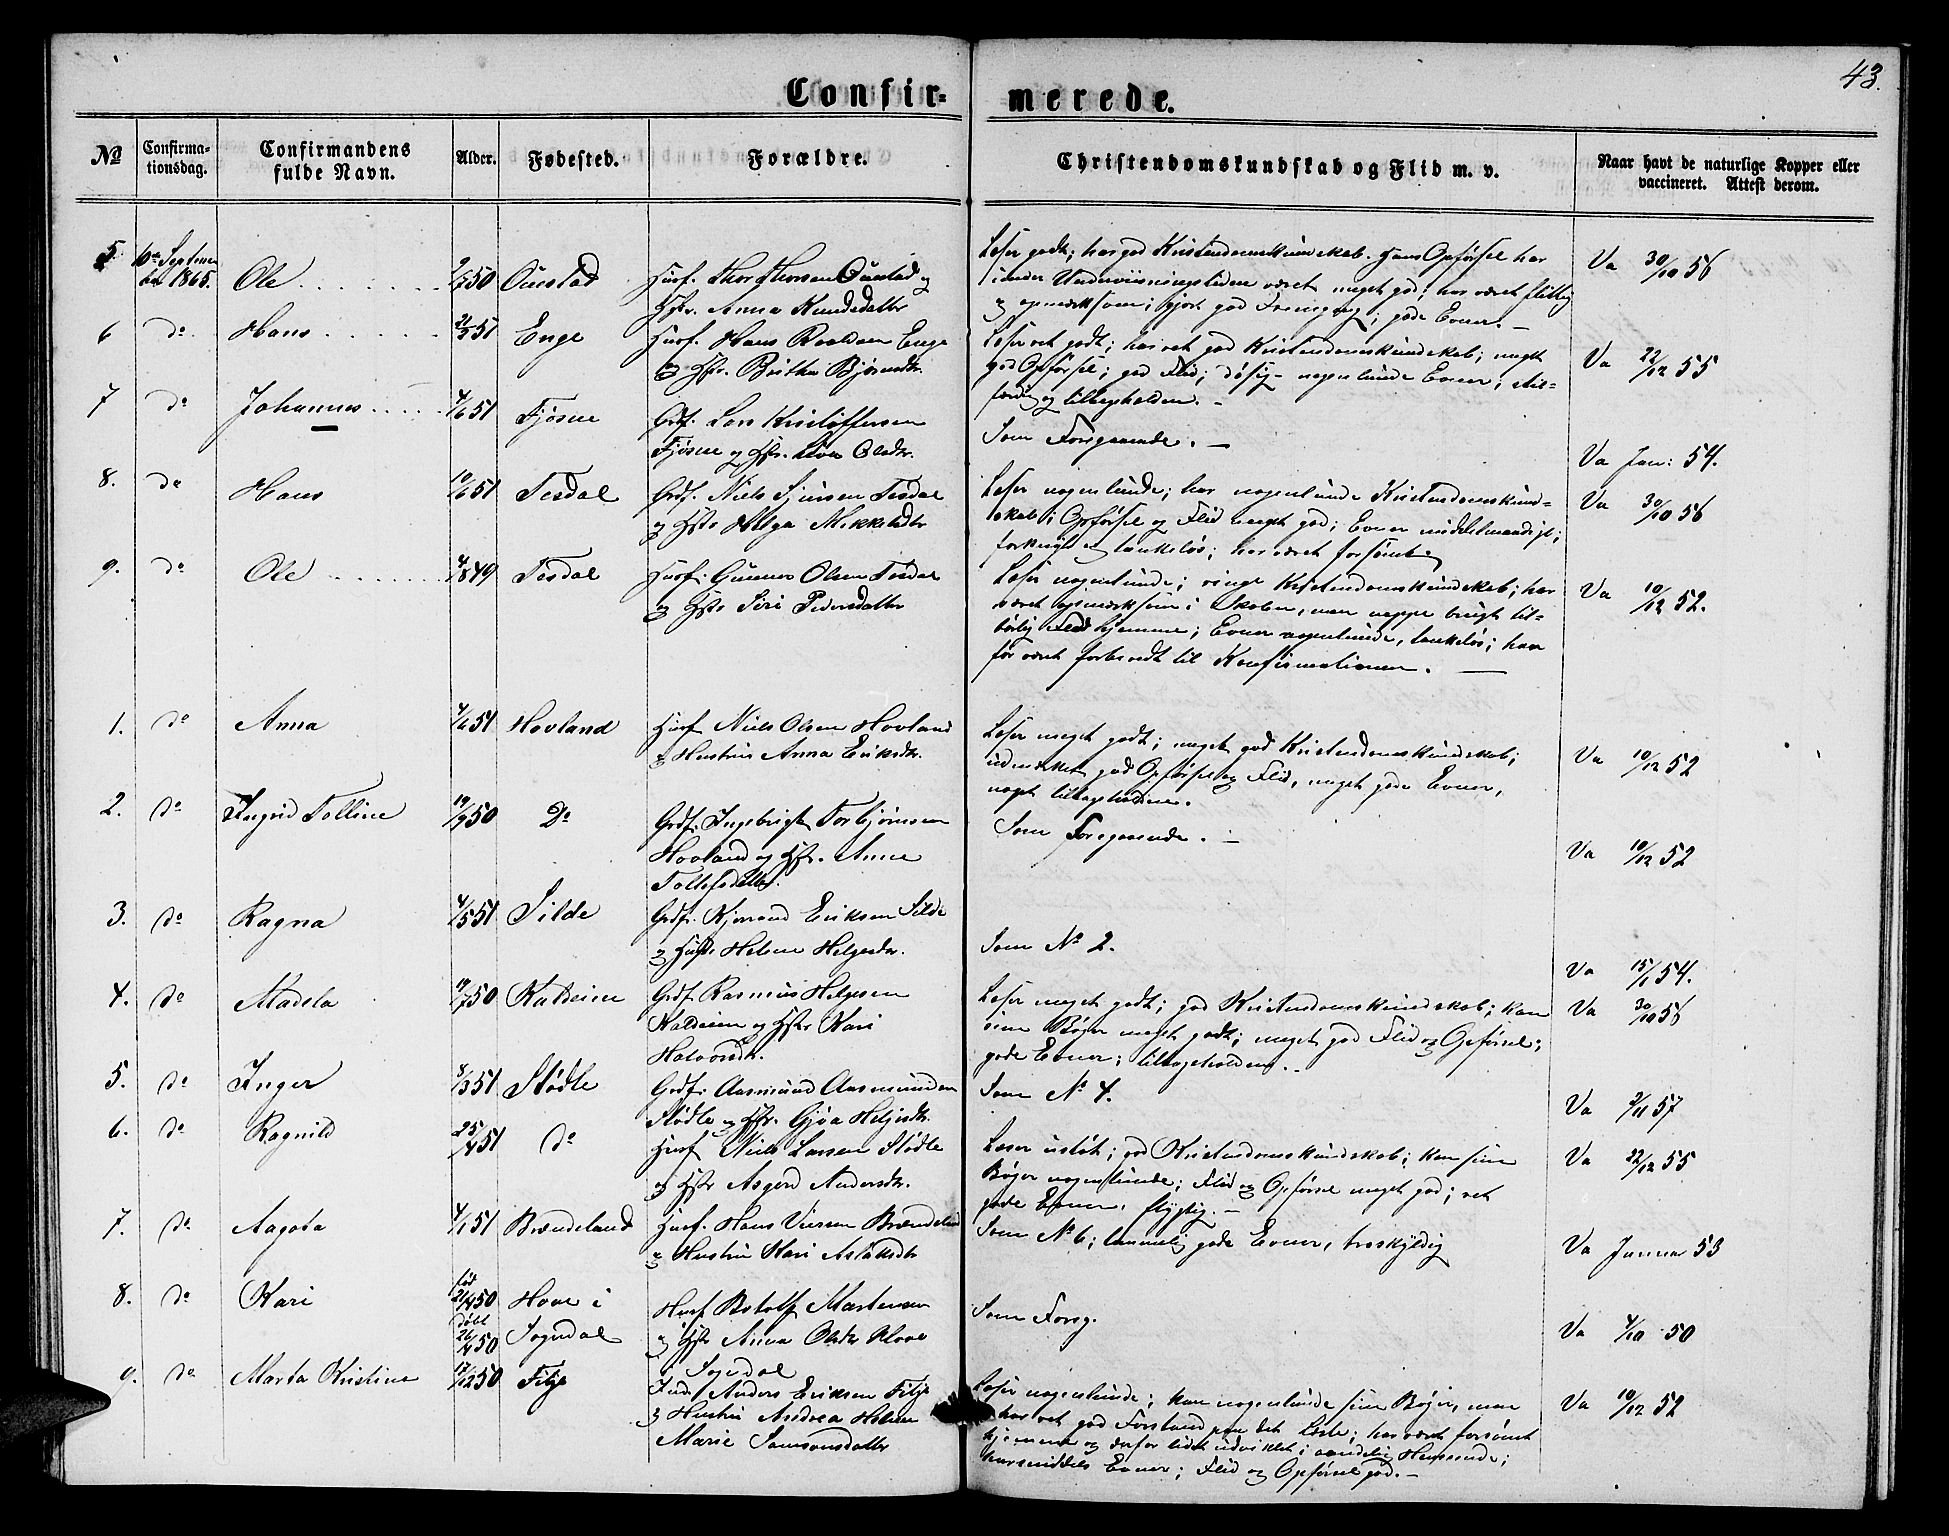 43.
Confir= merede.
No
Confirma-
tionsdag.
Confirmandens
fulde Navn.
Alder.
Fødested.
Forældre.
Christendomskundskab og Flid m. v.
Naar havt de naturlige Kopper eller
vaccineret. Attest derom.
5 10de Septem
ber 1865. Ole 50 Ouestad Husf. Thor Thorsen Ouestad og
Hstr. Anna Knudsdatter
Læser godt; har god Kristendomskundskab. Hans Opførsel har
under Underviisningstiden været meget god; har været flittig
og opmærksom; gjort god Fremgang; gode Evner. –
Va 30/10 56
6 do Hans 51 Enge Husf. Hans Roaldsen Enge
og Hstr. Britha Bjørnsdtr.
Læser ret godt; har ret god Kristendomskundskab; meget
god Opførsel; god Flid; døsig – nogenlunde Evner; stil-
færdig og tilbageholden. –
Va 22/12 55
7 do Johannes 4/6 51 Fjøsne Grdf. Lars Kristoffersen
Fjøsne og Hstr. Olsdtr.
Som Foregaaende. –
Va Jan: 54.
8. do Hans 10/6 51 Tesdal Grdf. Niels Sjursen Tesdal
og Hstr Helga Mikkelsdtr
Læser nogenlunde; har nogenlunde Kristendomskund-
skab; Opførsel og Flid meget god; Evner middelmaadige;
og tankeløs; har været forsømt
Va 30/10 56
9. do Ole 4/8 49 Tesdal Husf. Gunnar Olsen Tesdal
og Hstr Siri Pedersdatter
Læser nogenlunde; ringe Kristendomskundskab; har
været opmærksom i Skolen, men neppe brugt til-
børlig Flid hjemme; Evner nogenlunde, tankeløs; har
før været forberedt til Konfirmationen. –
Va 10/12 52.
1. do Anna 4/6 51 Hovland Husf Niels Olsen Hovland
og Hustru Anna Eriksdtr.
Læser meget godt; meget god Kristendomskundskab;
udmærket god Opførsel og Flid, meget gode Evner,
noget tilbageholdene.
Va 10/12 52
2. do Ingrid Tolline 19/9 50 Do Grdf. Ingebrigt Torbjørnsen
Hovland og Hstr. Anna
Tollefsdatter.
Som Foregaaende. –
Va 10/12 52
3. do Ragna 4/5 51 Silde Grdf. Eriksen Silde
og Hustr Helene Helgesdtr.
Som No 2.
Va 15/1 54.
4. do Madela 19/7 50 Kaldeien Grdf Rasmus Helgesen
Kaldeien og Hstr Kari
Halvorsdtr.
Læser meget godt; god Kristendomskundskab; kan
sine Bøger meget godt; meget god Flid og Opførsel;
gode Evner; tilbageholden.
Va 30/10 56
5. do Inger 8/3 51 Stødle Grdf. Aasmund Aasmundsen
Stødle og Hstr. Gjøa Helgesdtr.
Som No 4.
Va 2/11 57
6. do Ragnild 25/4 51 do Husf Niels Larsen Stødle
og Hstr Asgerd Andersdtr.
Læser ustøt; god Kristendomskundskab; kan sine
Bøger nogenlunde; Flid og Opførsel meget god; ret
gode Evner, flygtig. –
Va 22/12 55
7. do Aagota 4/1 51 Brændeland Husf. Hans Brændeland
og Hustru Kari Aslaksdtr
Som No 6; temmelig gode Evner, troskyldig
Va Januar 53
8. do Kari fød
21/4 50
døbt
26/4 50 Hove i
Sogndal Husf Botolf Martensen
og Hstr Anna Olsdtr Hove
i Sogndal
Som Foreg.
Va 4/10 50
9. do Marta Kristina 17/12 50 Fitje Ind. Anders Eriksen Fitje
og Hustru Andrea Helene
Marie Samsonsdatter
Læser nogenlunde; kan nogenlunde sine Bøger, men
har ret god Forstand paa det Læste; har været forsømt
hjemme og derfor lidet udviklet i aandelig Henseende;
Evner; Flid og Opførsel god. –
Va 10/12 52